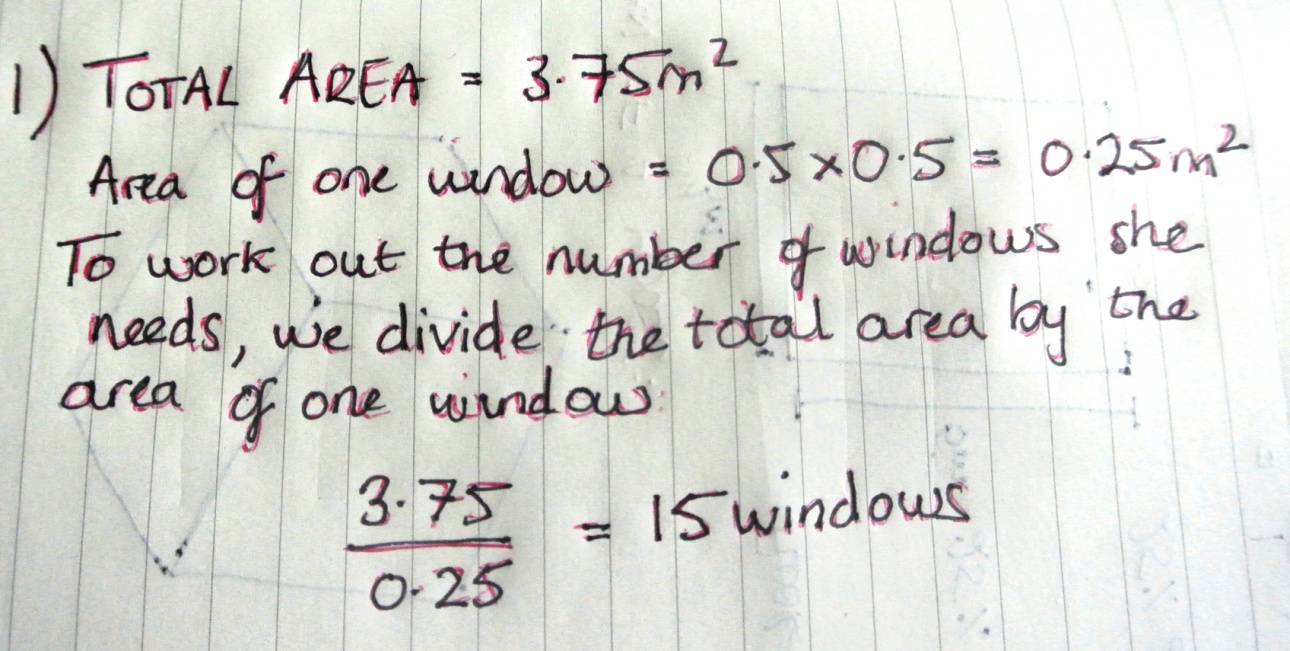 1) TOTAL AREA = 3.75m²
Area of one window = 0.5 × 0.5 = 0.25m²
To work out the number of windows she
needs, we divide the total area by the
area of one window
3.75
= 15 windows
0.25